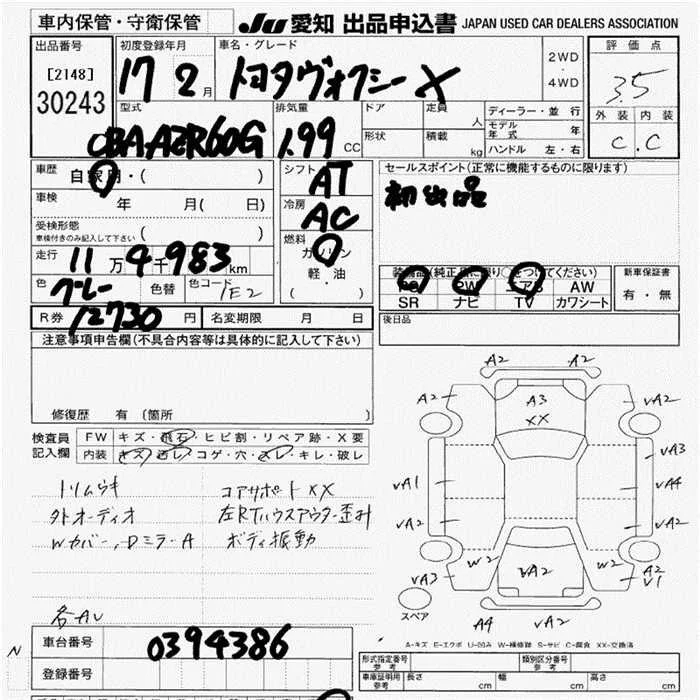 車内保管・守衛保管
JU 愛知 出品申込書 JAPAN USED CAR DEALERS ASSOCIATION
出品番号 初度登録年月 車名・グレード 2WD・4WD 評価点
[2148]
30243 17 2月 トヨタヴォクシー X 3.5
型式 排気量 ドア 定員 人 ディーラー・並行 外装 内装
モデル年式 年
CBA-AZR60G 1.99 CC 形状 積載 kg ハンドル 左・右 C . C
車歴 自家用・( ) シフト AT セールスポイント(正常に機能するものに限ります)
車検 年 月( 日) 冷房 AC 初出品
受検形態
車検付きのみ記入して下さい
燃料 ガソリン
走行 11万4千983km 軽・油 装備品(純正品に限り○をつけてください) 新車保証書
色 グレー 色替 色コード 1E2 ( ) PS PW エアB AW 有・無
SR ナビ TV カワシート
R券 12730円 名変期限 月 日 後日品
注意事項申告欄(不具合内容等は具体的に記入して下さい)
修復歴 有 〔箇所 〕
検査員記入欄 FW キズ・飛石・ヒビ割・リペア跡・X要
内装 キズ・汚レ・コゲ・穴・スレ・キレ・破レ
トリムウキ コアサポートXX
外オーディオ 左RTハウスアウター歪み
Wカバー,DミラーA ボディ振動
各AU
A2 A2
A2 A3 VA2
XX
VA3
VA1 VA4
VA2 VA2
W2 VA2 W2
VA3 A2
V1
スペア A4 VA2
A-キズ E-エクボ U-凹み W-補修跡 S-サビ C-腐食 XX-交換済
N
車台番号 0394386
登録番号
形式指定番号 参考 類別区分番号 参考
車庫証明用 参考 長さ cm 幅 cm 高さ cm